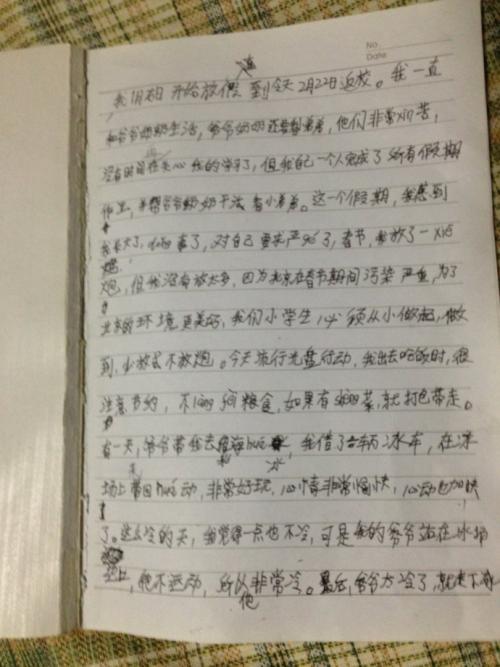 No.
Date
我1月18日开始放假,到今天2月22日返校。我一直
和爷爷奶奶生活,爷爷奶奶还要看弟弟,他们非常xin苦,
没有时间关心我的学习了,但我自己一个人完成了所有假期
作业,并帮爷爷奶奶干活,看小弟弟。这一个假期,我感到
我长大了,dong事了,对自己要求严格了,春节,我放了一xie
炮,但我没有放太多,因为北京在春节期间污染严重,为了
北京的环境更美好,我们小学生,必须从小做起,做
到,少放或不放炮。今天流行光盘行动,我出去吃饭时,很
注意节约,不lang fei粮食,如果有sheng菜,就打包带走。
有一天,爷爷带我去hua冰,我借了一辆冰车,在冰
场上带回hua动,非常好玩,心情非常愉快,心动也加快
了。这么冷的天,我觉得一点也不冷,可是我的爷爷站在冰场
上,他不运动,所以他非常冷。最后,爷爷太冷了,就走下冰